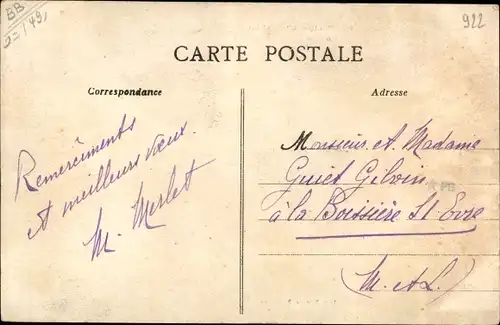 BB
922
CARTE POSTALE
Correspondance
Adresse
Remerciments
et meilleurs vœux.
M. Merlet
Monsieur et Madame
Guiet
à la Boissière St Evre
(M. et L.)